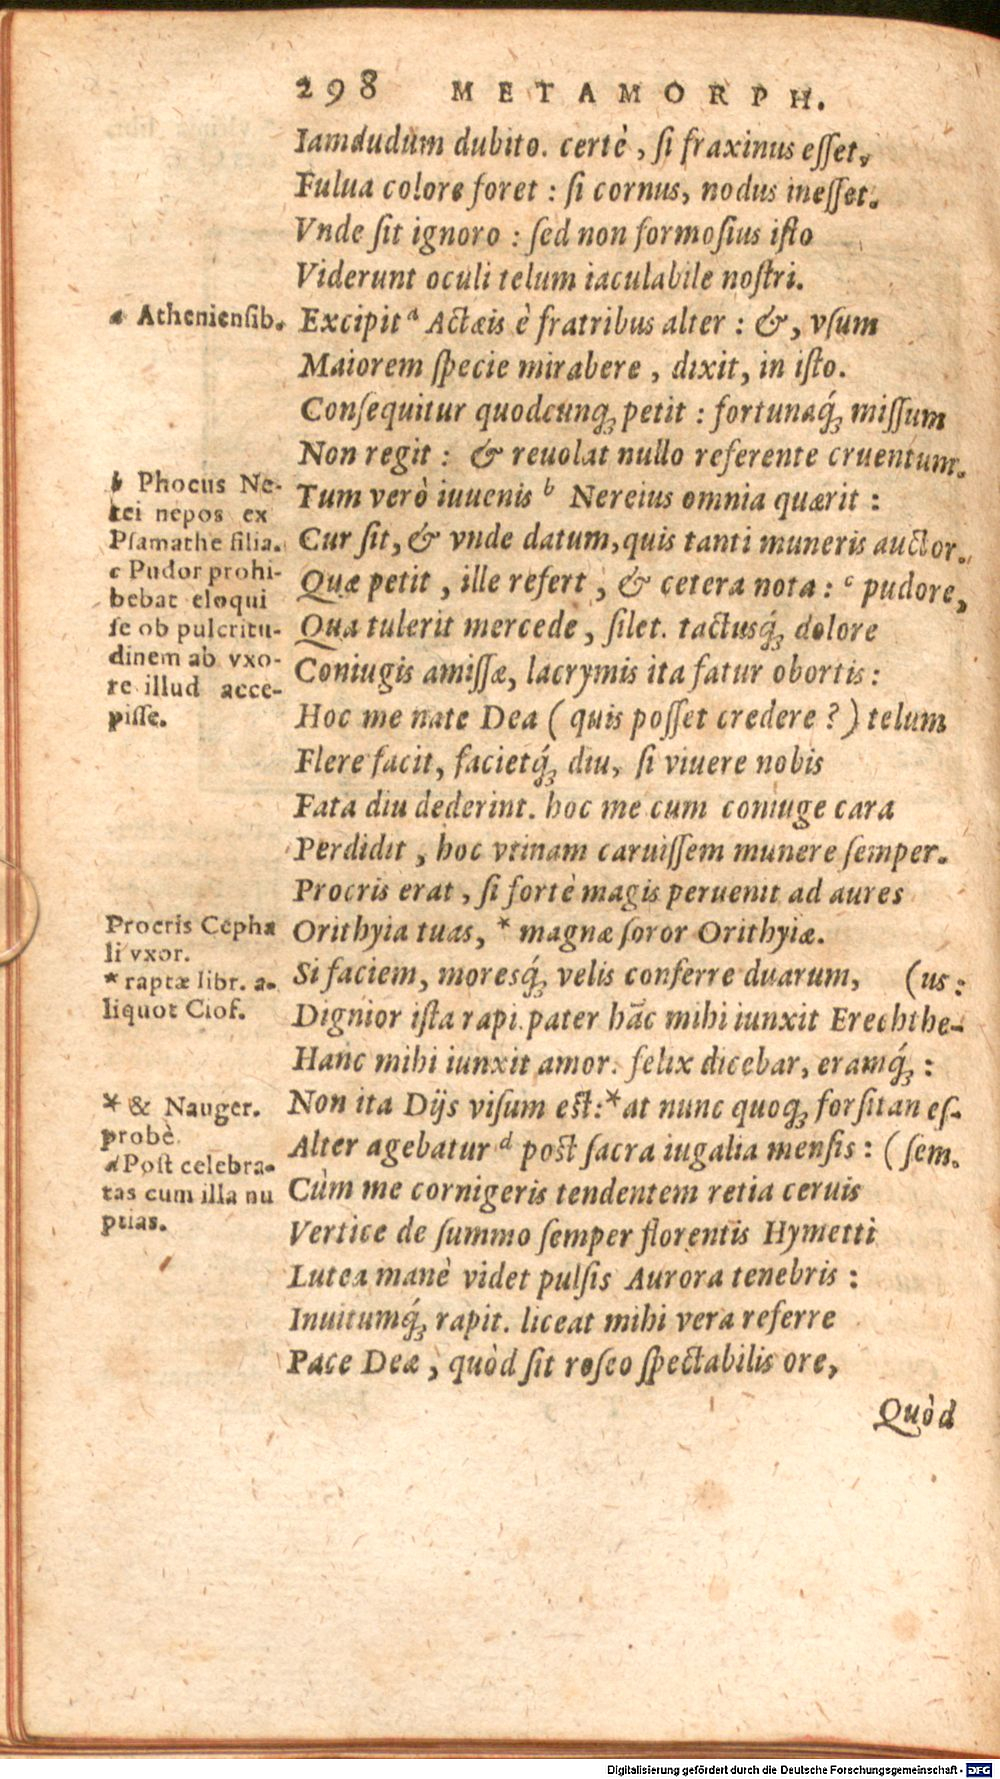 298 METAMORPH.
Iamdudum dubito. certè, si fraxinus esset,
Fulua colore foret : si cornus, nodus inesset.
Vnde sit ignoro : sed non formosius isto
Viderunt oculi telum iaculabile nostri.
a Atheniensib.
Excipit a Actæis è fratribus alter : &, vsum
Maiorem specie mirabere, dixit, in isto.
Consequitur quodcunq́ꝫ petit : fortunaq́ꝫ missum
Non regit : & reuolat nullo referente cruentum.
b Phocus Ne-
rei nepos ex
Psamathe filia.
c Pudor prohi-
bebat eloqui
se ob pulcritu-
dinem ab vxo-
re illud acce-
pisse.
Tum verò iuuenis b Nereius omnia quærit :
Cur sit, & vnde datum, quis tanti muneris auctor.
Quæ petit, ille refert, & cetera nota : c pudore,
Qua tulerit mercede, silet. tactusq́ꝫ dolore
Coniugis amissæ, lacrymis ita fatur obortis :
Hoc me nate Dea (quis posset credere ?) telum
Flere facit, facietq́ꝫ diu, si viuere nobis
Fata diu dederint. hoc me cum coniuge cara
Perdidit, hoc vtinam caruissem munere semper.
Procris erat, si fortè magis peruenit ad aures
Procris Cepha
li vxor.
* raptæ libr. a-
liquot Ciof.
Orithyia tuas, * magnæ soror Orithyiæ.
Si faciem, moresq́ꝫ velis conferre duarum, (us :
Dignior ista rapi. pater hāc mihi iunxit Erechthe-
Hanc mihi iunxit amor. felix dicebar, eramq́ꝫ :
* & Nauger.
probè.
d Post celebra-
tas cum illa nu
ptias.
Non ita Dijs visum est : * at nunc quoqꝫ forsitan es-
Alter agebatur d post sacra iugalia mensis : (sem.
Cùm me cornigeris tendentem retia ceruis
Vertice de summo semper florentis Hymetti
Lutea manè videt pulsis Aurora tenebris :
Inuitumq́ꝫ rapit. liceat mihi vera referre
Pace Deæ, quòd sit roseo spectabilis ore,
Quòd
Digitalisierung gefördert durch die Deutsche Forschungsgemeinschaft - DFG